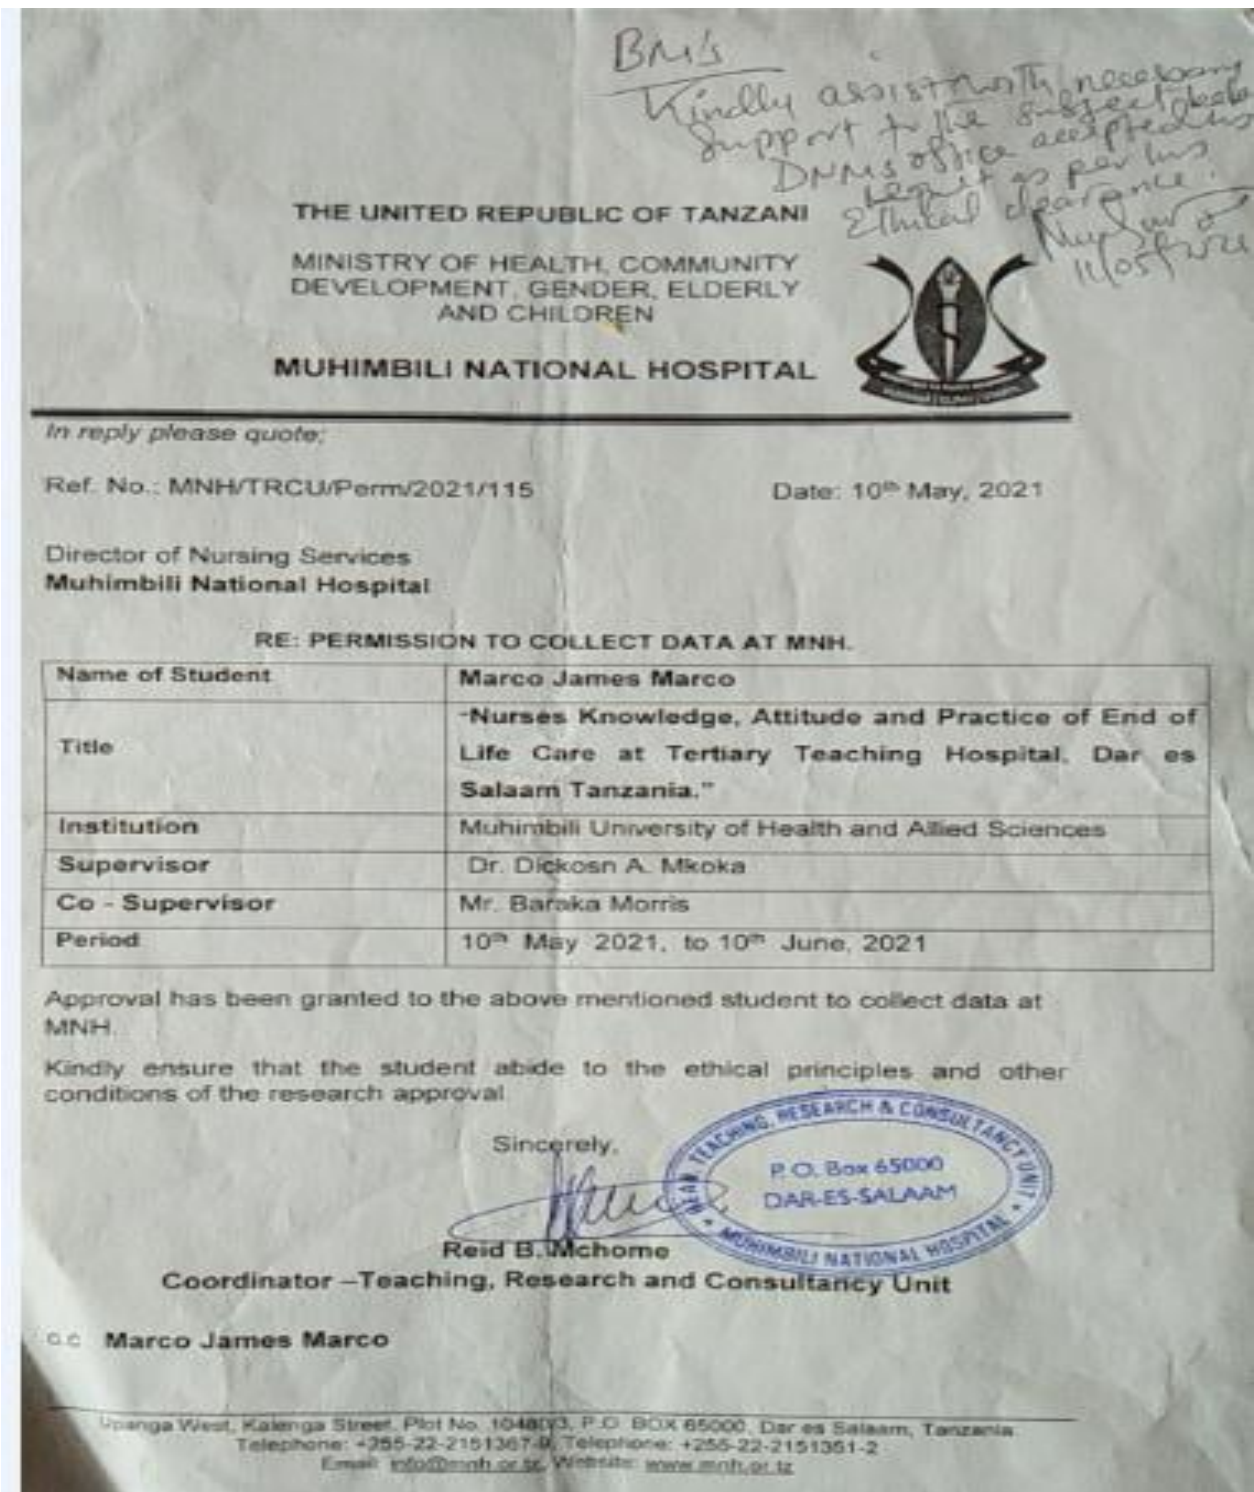 BM's
Kindly assist with necessary
Support to the subject
DNMS office accepted his
request as per his
Ethical clearance.
11/05/2021
THE UNITED REPUBLIC OF TANZANI
MINISTRY OF HEALTH, COMMUNITY
DEVELOPMENT, GENDER, ELDERLY
AND CHILDREN
MUHIMBILI NATIONAL HOSPITAL
In reply please quote;
Ref. No.: MNH/TRCU/Perm/2021/115 Date: 10th May, 2021
Director of Nursing Services
Muhimbili National Hospital
RE: PERMISSION TO COLLECT DATA AT MNH.
Name of Student Marco James Marco
Title "Nurses Knowledge, Attitude and Practice of End of
Life Care at Tertiary Teaching Hospital, Dar es
Salaam Tanzania."
Institution Muhimbili University of Health and Allied Sciences
Supervisor Dr. Dickosn A. Mkoka
Co - Supervisor Mr. Baraka Morris
Period 10th May 2021, to 10th June, 2021
Approval has been granted to the above mentioned student to collect data at
MNH.
Kindly ensure that the student abide to the ethical principles and other
conditions of the research approval.
Sincerely,
TEACHING, RESEARCH & CONSULTANCY UNIT
P.O. Box 65000
DAR-ES-SALAAM
MUHIMBILI NATIONAL HOSPITAL
Reid B. Mchome
Coordinator –Teaching, Research and Consultancy Unit
c.c Marco James Marco
Upanga West, Kalenga Street, Plot No. 10480/3, P.O. BOX 65000, Dar es Salaam, Tanzania
Telephone: +255-22-2151367-9, Telephone: +255-22-2151351-2
Email: info@mnh.or.tz, Website: www.mnh.or.tz